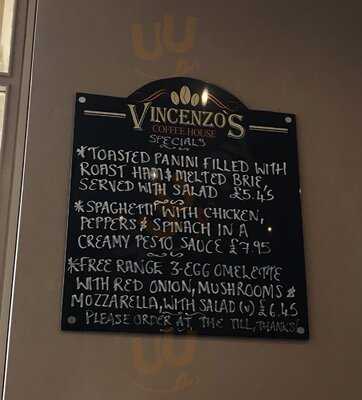 VINCENZO'S
COFFEE HOUSE
SPECIALS
*TOASTED PANINI FILLED WITH
ROAST HAM & MELTED BRIE,
SERVED WITH SALAD £5.45
*SPAGHETTI WITH CHICKEN,
PEPPERS & SPINACH IN A
CREAMY PESTO SAUCE £7.95
*FREE RANGE 3-EGG OMELETTE
WITH RED ONION, MUSHROOMS &
MOZZARELLA, WITH SALAD (V) £6.45
PLEASE ORDER AT THE TILL, THANKS!